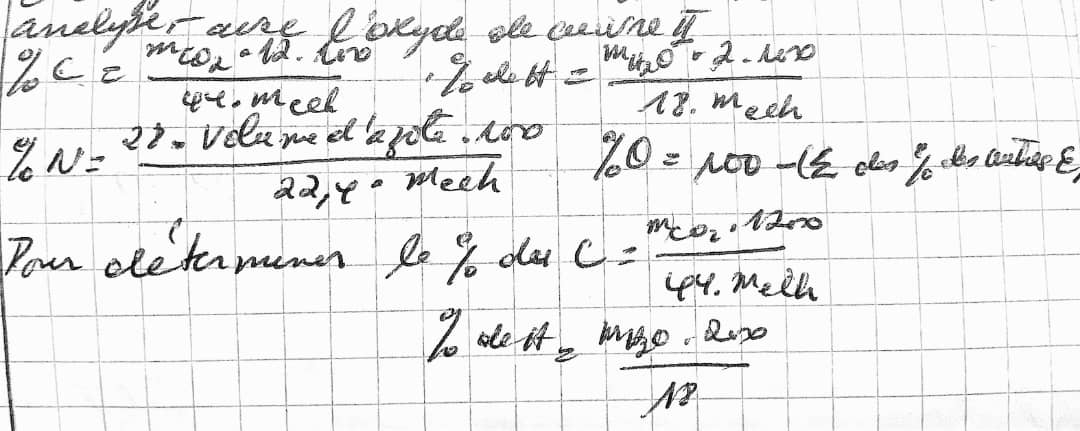 analyser avec l'oxyde de cuivre II
% C = mCO2 . 12 . 100 / 44 . mech . % de H = mH2O . 2 . 100 / 18 . mech
% N = 28 . Volume d'azote . 100 / 22,4 . mech %O = 100 - (Σ des % des autres E,
Pour déterminer le % du C = mCO2 . 1200 / 44 . mech
% de H = mH2O . 200 / 18